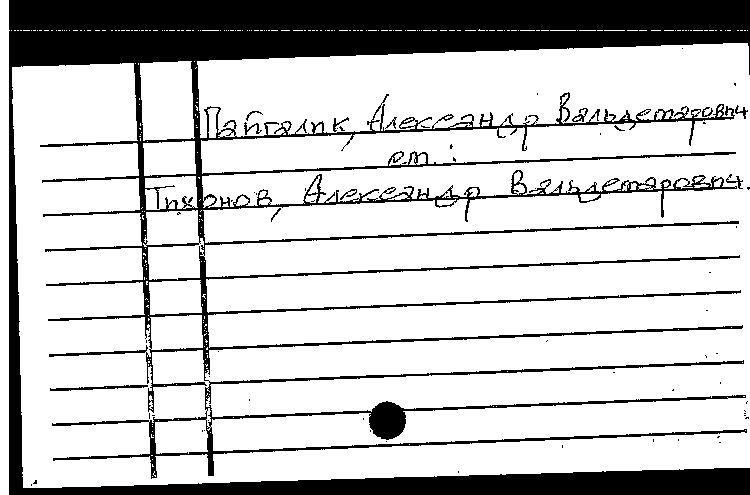 Пайгалик, Александр Вальдемарович
см.:
Тихонов, Александр Вальдемарович.